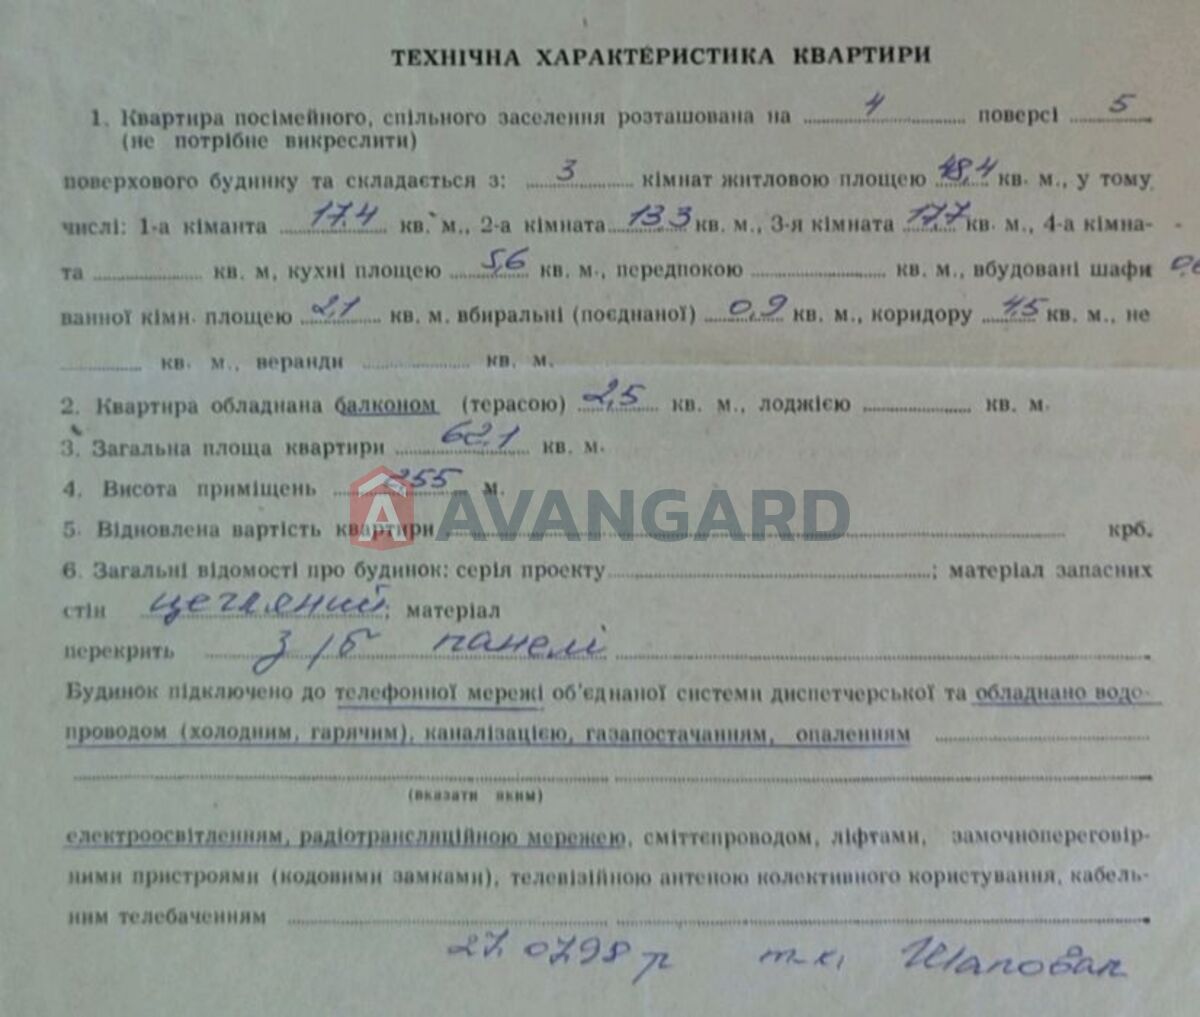 ТЕХНІЧНА ХАРАКТЕРИСТИКА КВАРТИРИ
1. Квартира посімейного, спільного заселення розташована на 4 поверсі 5
(не потрібне викреслити)
поверхового будинку та складається з: 3 кімнат житловою площею 48,4 кв. м., у тому
числі: 1-а кіманта 17.4 кв. м., 2-а кімната 13.3 кв. м., 3-я кімната 17,7 кв. м., 4-а кімна-
та кв. м, кухні площею 5,6 кв. м., передпокою кв. м., вбудовані шафи 0,6
ванної кімн. площею 2,1 кв. м. вбиральні (поєднаної) 0,9 кв. м., коридору 4,5 кв. м., не
кв. м., веранди кв. м.
2. Квартира обладнана балконом (терасою) 2,5 кв. м., лоджією кв. м.
3. Загальна площа квартири 62.1 кв. м.
4. Висота приміщень 255 м.
AVANGARD
5. Відновлена вартість квартири крб.
6. Загальні відомості про будинок: серія проекту ; матеріал запасних
стін цегляний; матеріал
перекрить з/б панелі
Будинок підключено до телефонної мережі об'єднаної системи диспетчерської та обладнано водо-
проводом (холодним, гарячим), каналізацією, газапостачанням, опаленням
(вказати яким)
електроосвітленням, радіотрансляційною мережею, сміттєпроводом, ліфтами, замочнопереговір-
ними пристроями (кодовими замками), телевізійною антеною колективного користування, кабель-
ним телебаченням
27.07.98 р т-к. Шаповал